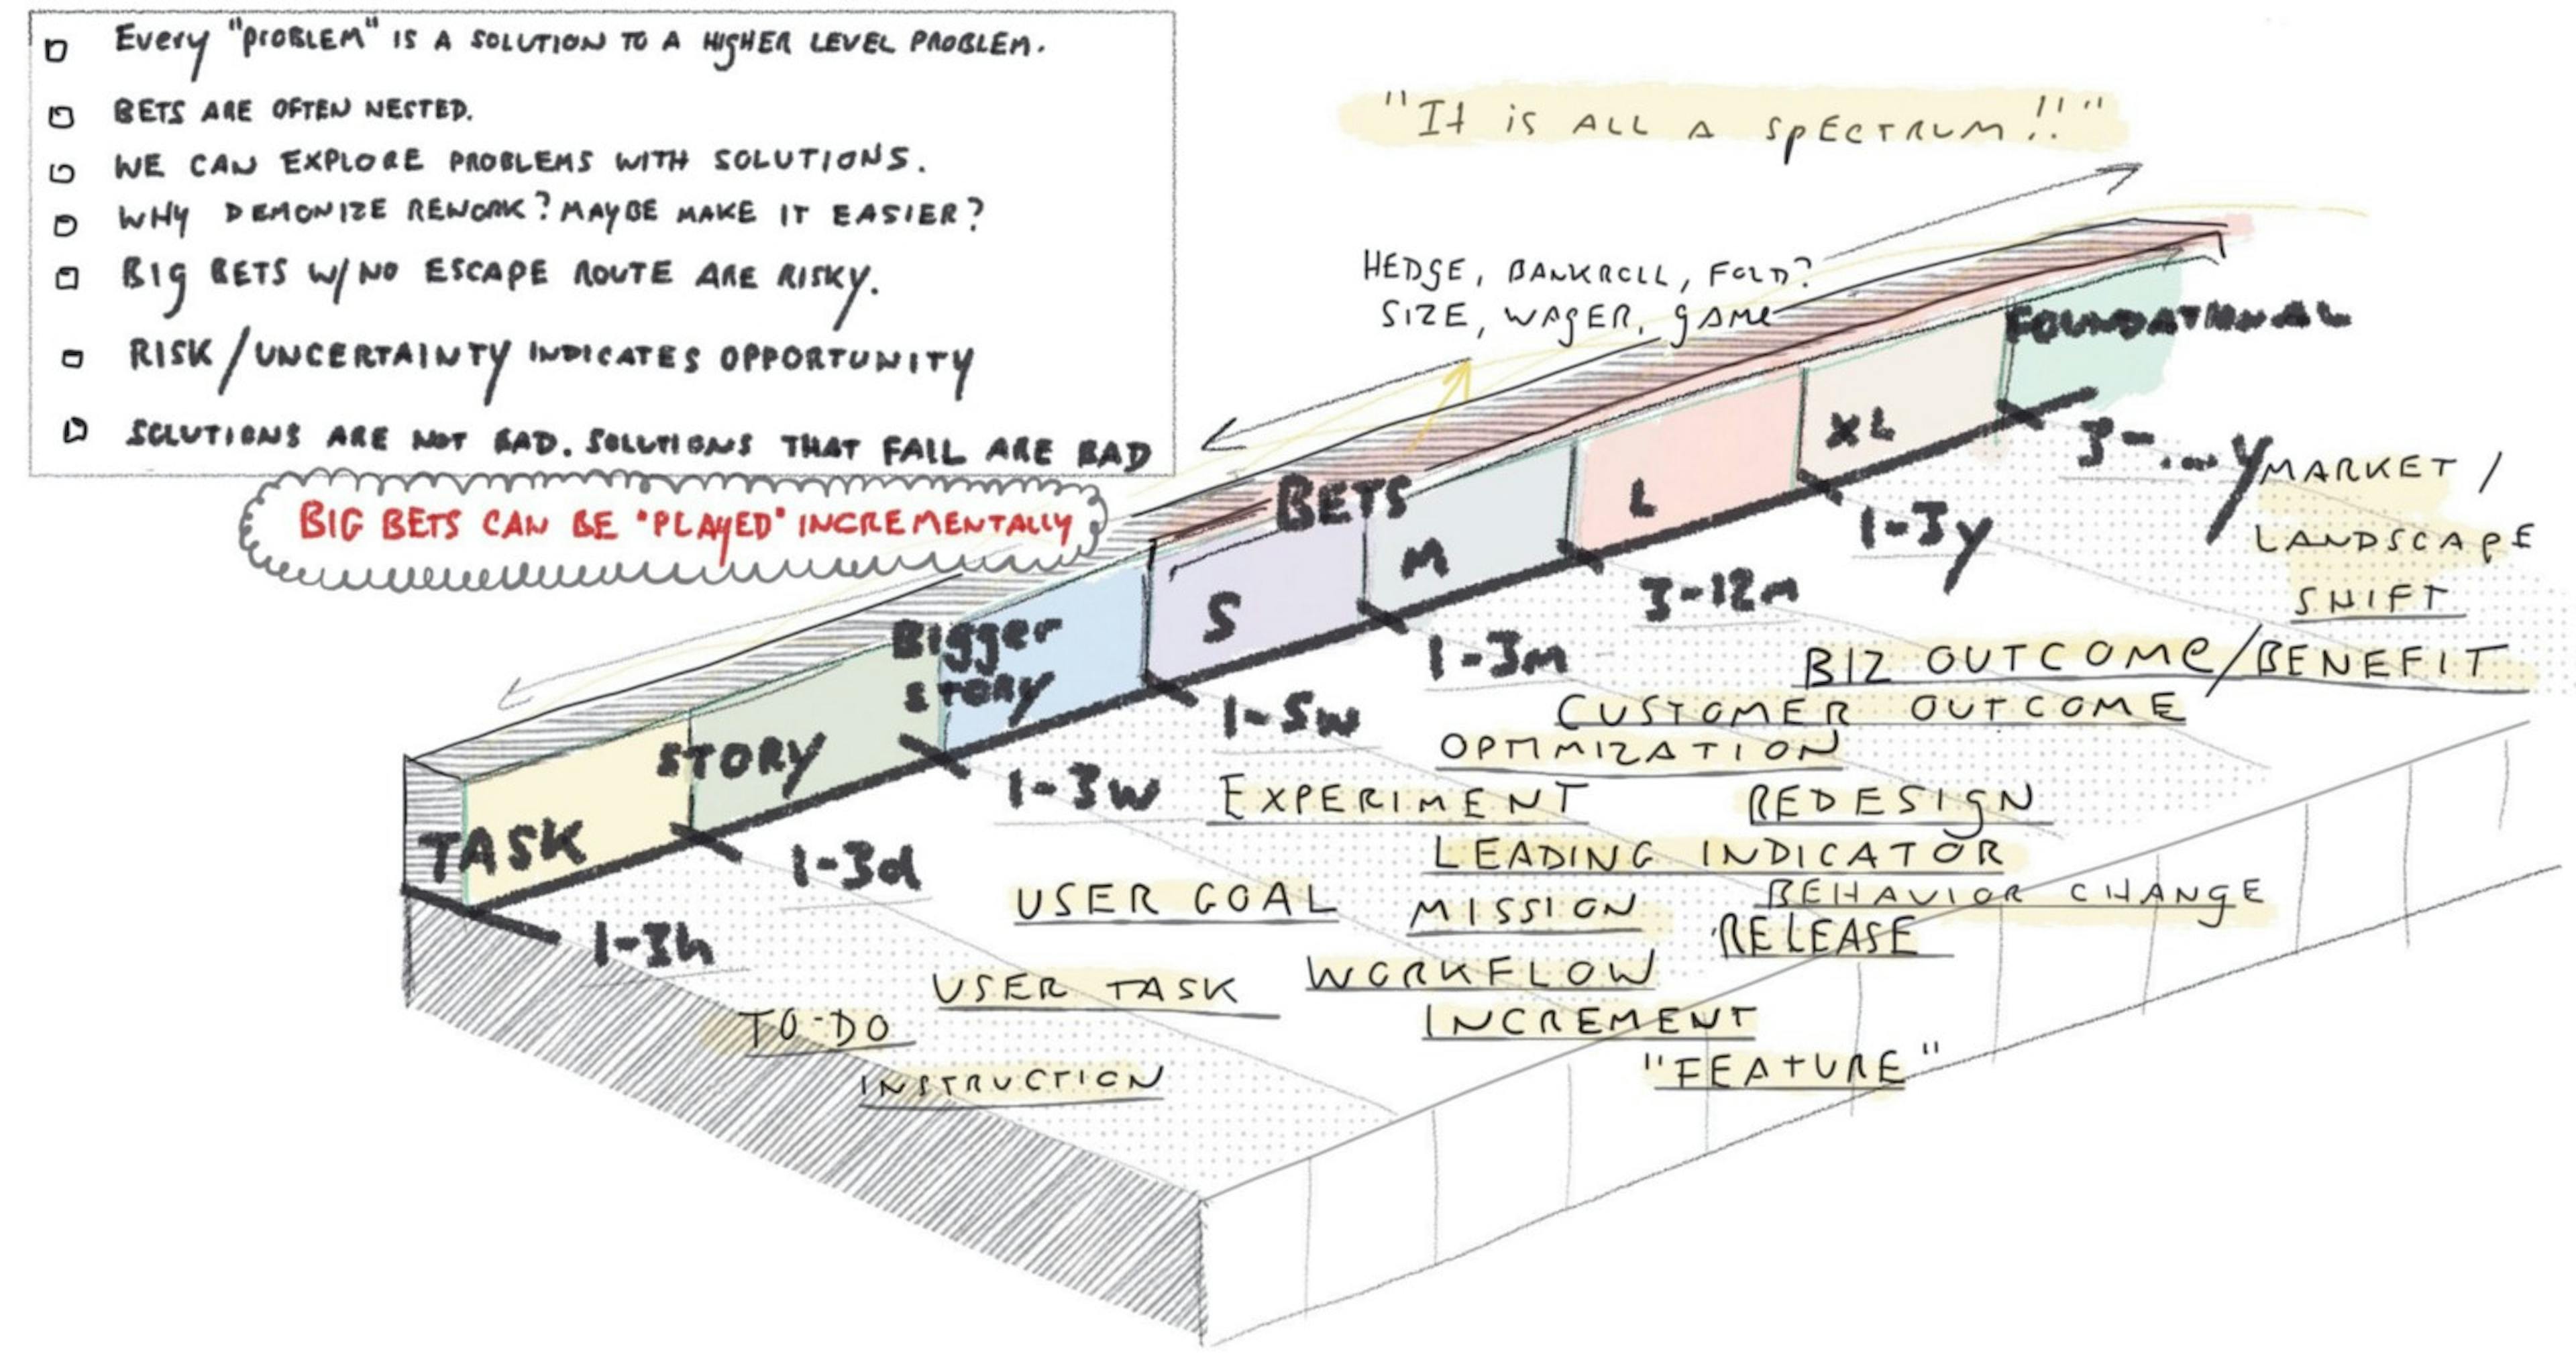 Every "PROBLEM" IS A SOLUTION TO A HIGHER LEVEL PROBLEM.
BETS ARE OFTEN NESTED.
WE CAN EXPLORE PROBLEMS WITH SOLUTIONS.
WHY DEMONIZE REWORK? MAYBE MAKE IT EASIER?
BIG BETS W/ NO ESCAPE ROUTE ARE RISKY.
RISK/UNCERTAINTY INDICATES OPPORTUNITY
SOLUTIONS ARE NOT BAD. SOLUTIONS THAT FAIL ARE BAD
BIG BETS CAN BE "PLAYED" INCREMENTALLY
"It is ALL A SPECTRUM!!"
HEDGE, BANKROLL, FOLD?
SIZE, WAGER, GAME
TASK
STORY
Bigger
STORY
BETS
S
M
L
XL
FOUNDATIONAL
1-3h
1-3d
1-3w
1-5w
1-3m
3-12m
1-3y
3-....y
MARKET /
LANDSCAPE
SHIFT
BIZ OUTCOME/BENEFIT
CUSTOMER OUTCOME
OPTIMIZATION
EXPERIMENT
REDESIGN
LEADING INDICATOR
BEHAVIOR CHANGE
USER GOAL
MISSION
RELEASE
USER TASK
WORKFLOW
INCREMENT
TO-DO
"FEATURE"
INSTRUCTION